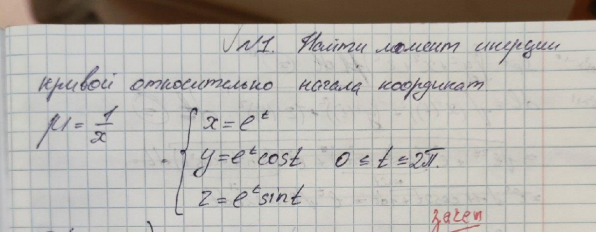 √ N1. Найти момент инерции
кривой относительно начала координат
μ = 1/x
{ x = e^t
y = e^t cost 0 ≤ t ≤ 2π.
z = e^t sint
зачет